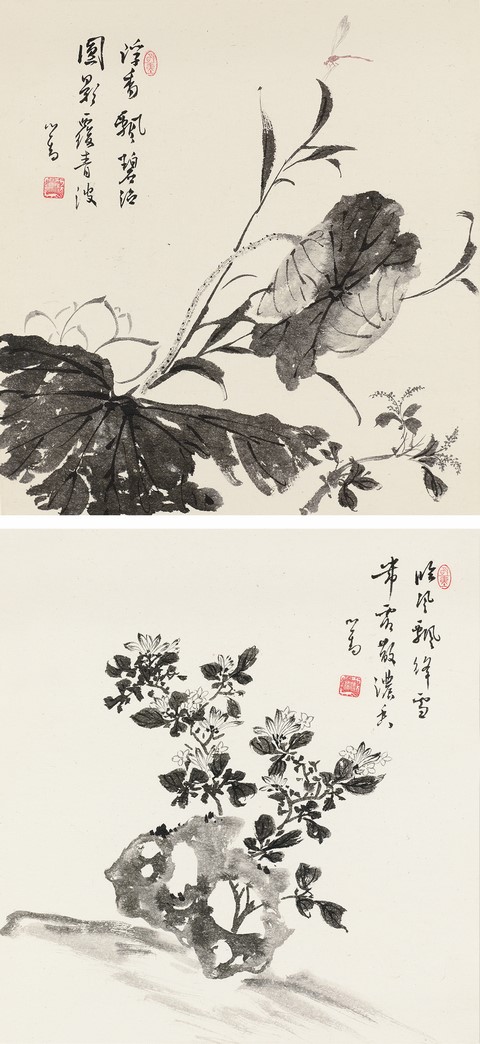 浮香飄碧沼
圓影覆青波
心畬
臨風飄絳雪
帶露散濃香
心畬